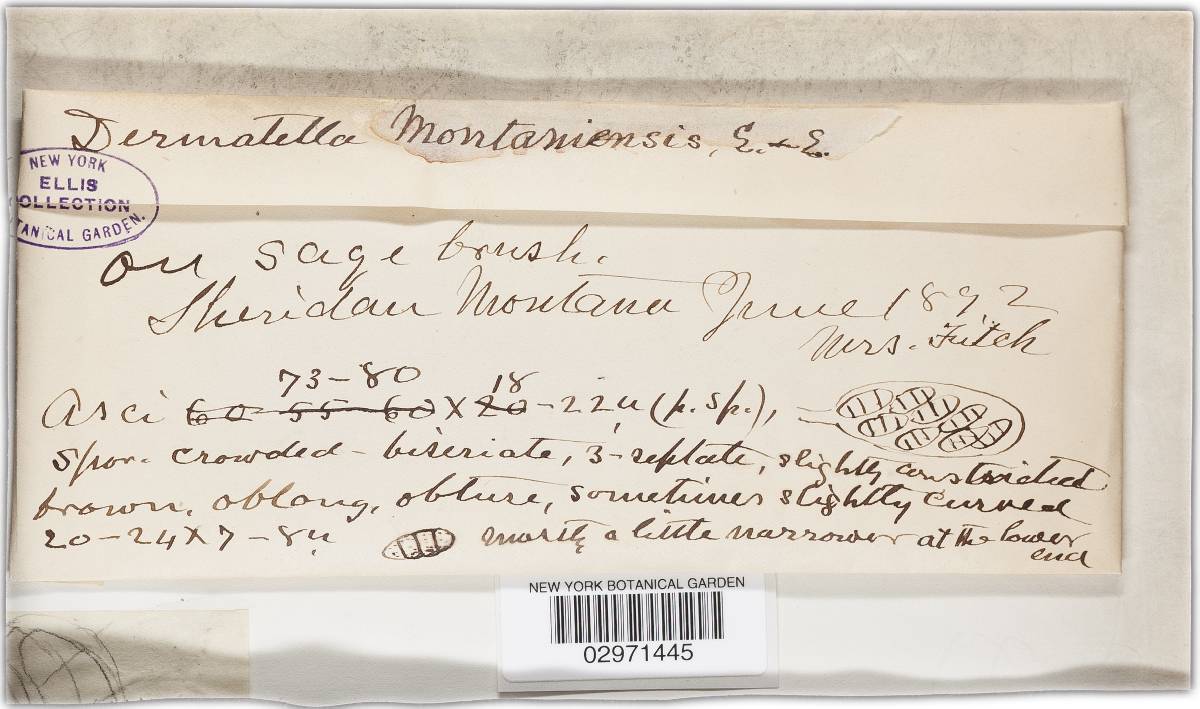 Dermatella Montaniensis, E. & E.
NEW YORK
ELLIS
OLLECTION
TANICAL GARDEN.
on sage brush.
Sheridan Montana June 1892
Mrs. Fitch
73-80 18
Asci 60 55-60 X 20-22µ (p. sp.),
Spor. crowded-biseriate, 3-septate, slightly constricted
brown, oblong, obtuse, sometimes slightly curved
20-24 X 7-8µ mostly a little narrower at the lower
end
NEW YORK BOTANICAL GARDEN
02971445